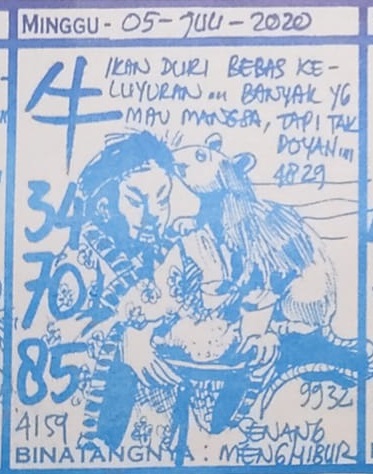 MINGGU - 05-JULI-2020
牛
IKAN DURI BEBAS KE-
LUYURAN ... BANYAK YG
MAU MANGSA, TAPI TAK
DOYAN ...
4829
34
70
85
9932
4159
BINATANGNYA : SENANG
MENGHIBUR